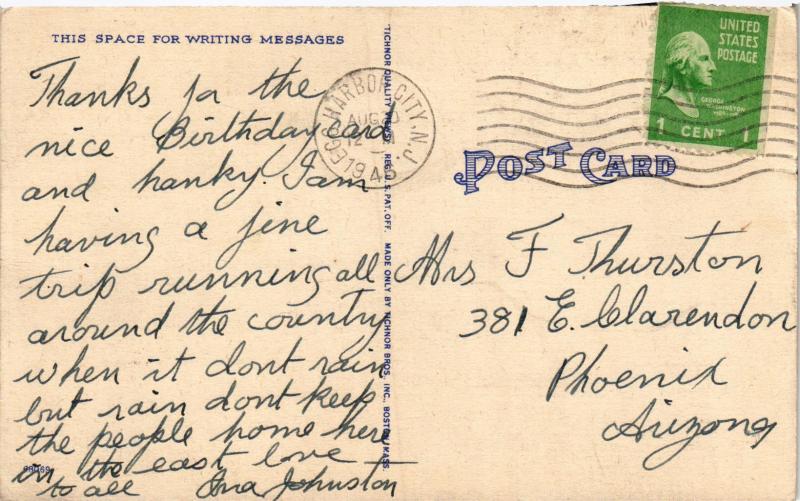 THIS SPACE FOR WRITING MESSAGES
Thanks for the
nice Birthday card
and hanky. I am
having a fine
trip running all
around the country
when it dont rain
but rain dont keep
the people home here
in the east love
to all Ina Johnston
69069
TICHNOR QUALITY VIEWS REG. U. S. PAT. OFF. MADE ONLY BY TICHNOR BROS. INC., BOSTON, MASS.
EGG HARBOR CITY, N.J.
AUG 30
12
1945
UNITED
STATES
POSTAGE
GEORGE
WASHINGTON
1 CENT 1
POST CARD
Mrs F Thurston
381 E. Clarendon
Phoenix
Arizona